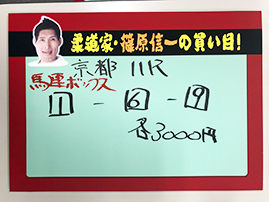 柔道家・篠原信一の買い目!
京都 11R
馬連ボックス
1 - 6 - 9
各3000円